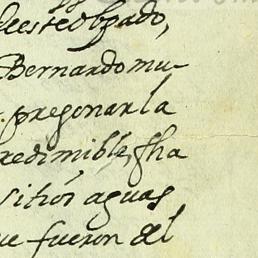 deesteobpado,
Bernardo mu-
pregonar la
redimible, fha
sitios aguas
ue fueron del